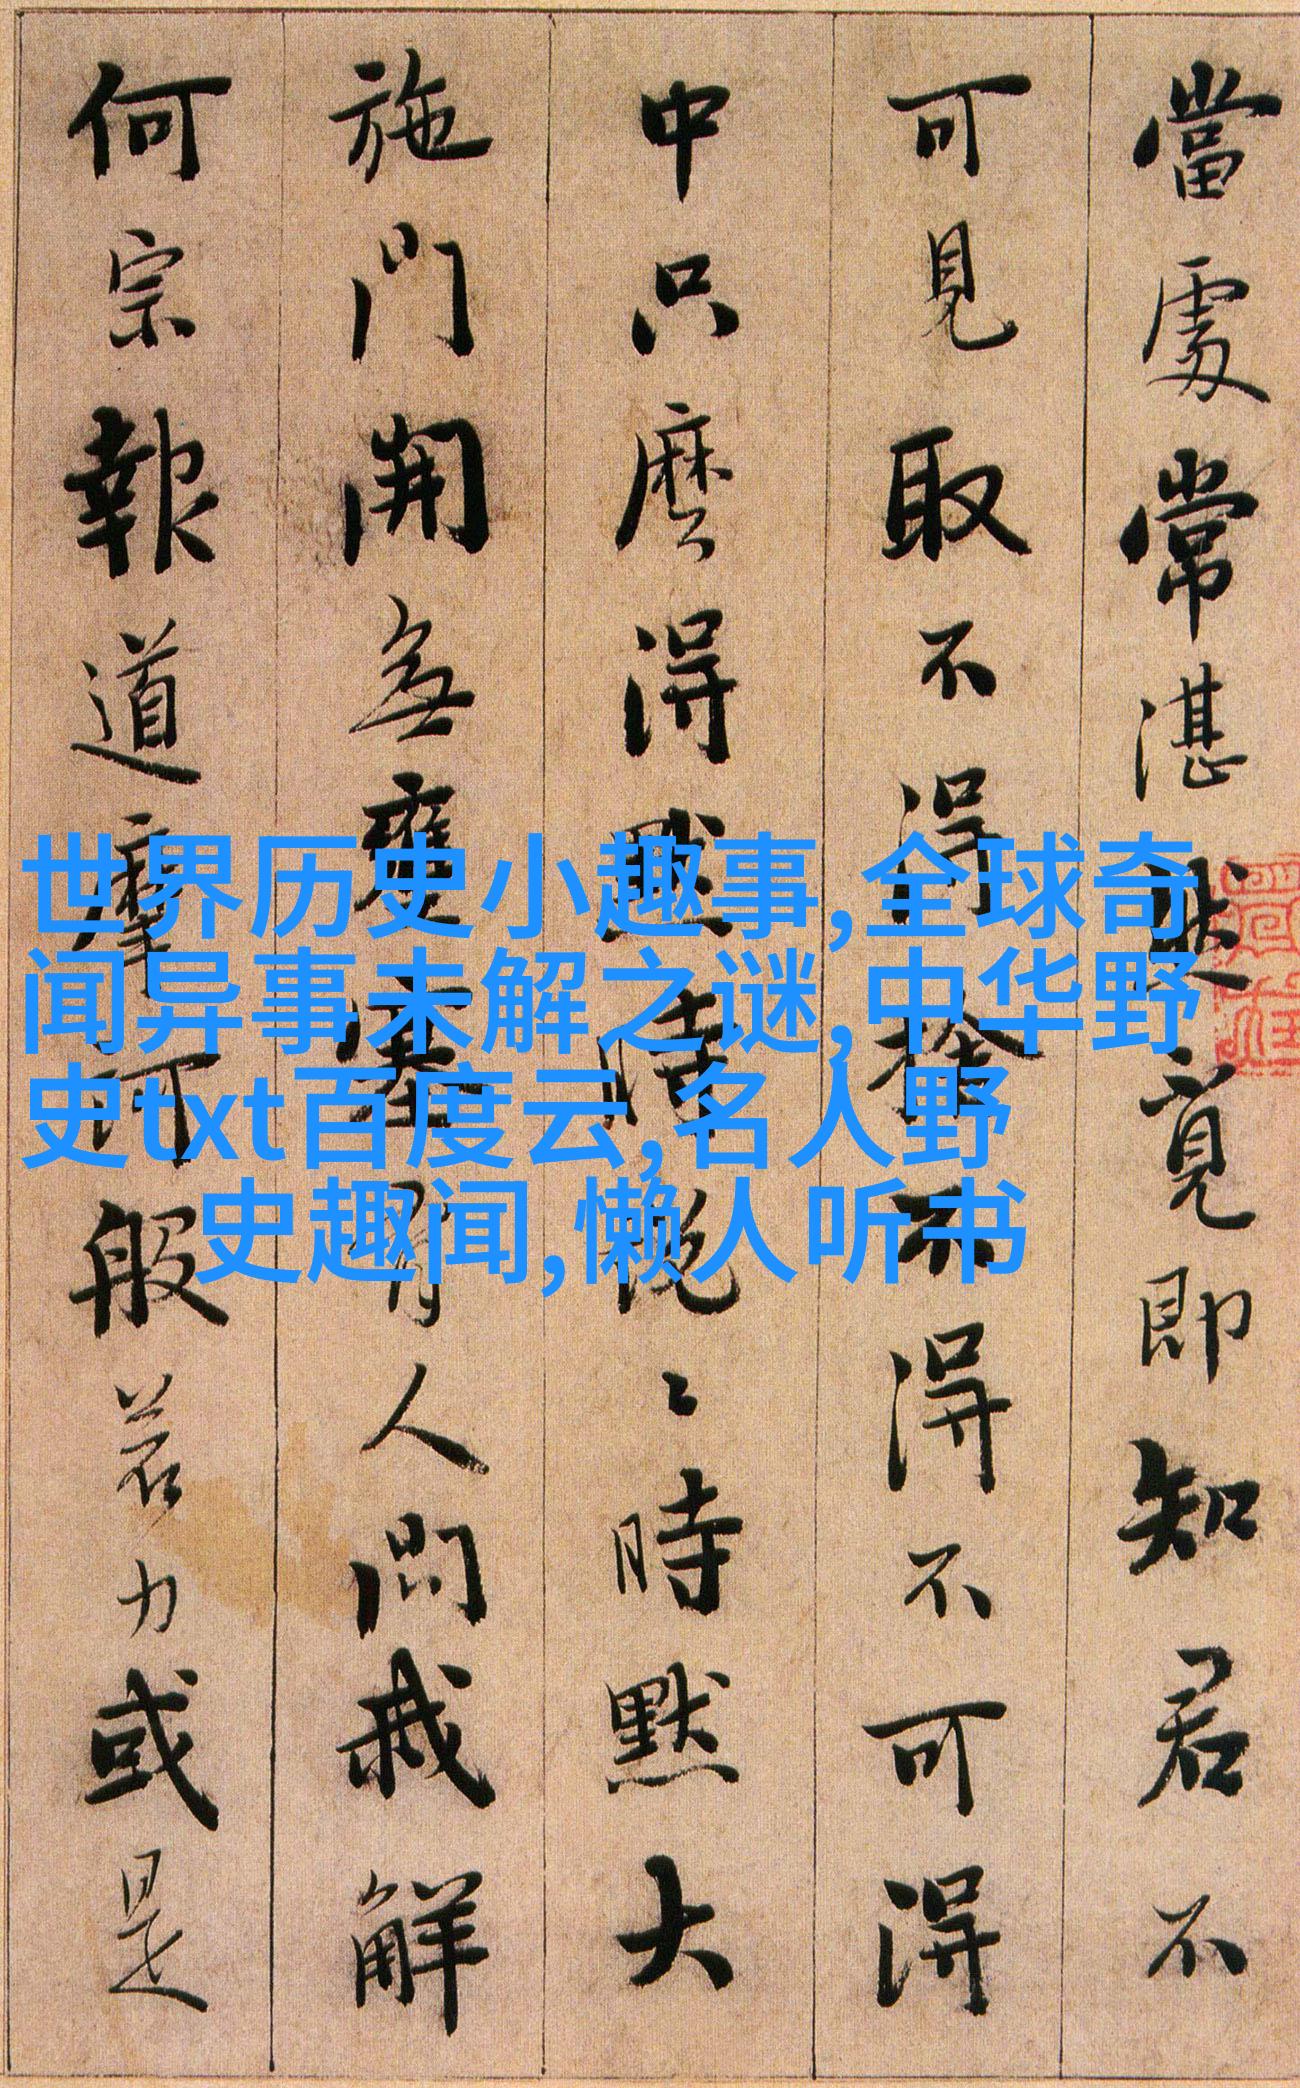 當處常湛然覓即知君不
可見取不得捨不得不可得
中只麼得默時說〻時默大
施門開無壅塞有人問我解
何宗報道摩訶般若力或是
世界历史小趣事,全球奇
闻异事未解之谜,中华野
史txt百度云,名人野
史趣闻,懒人听书